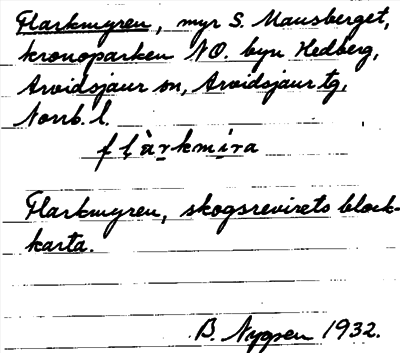 Flarkmyren, myr S. Mausberget,
kronoparken NO. byn Hedberg,
Arvidsjaur sn, Arvidsjaur tg,
Norrb. l.
flàrkmira
Flarkmyren, skogsrevirets block-
karta.
B. Nygren 1932.